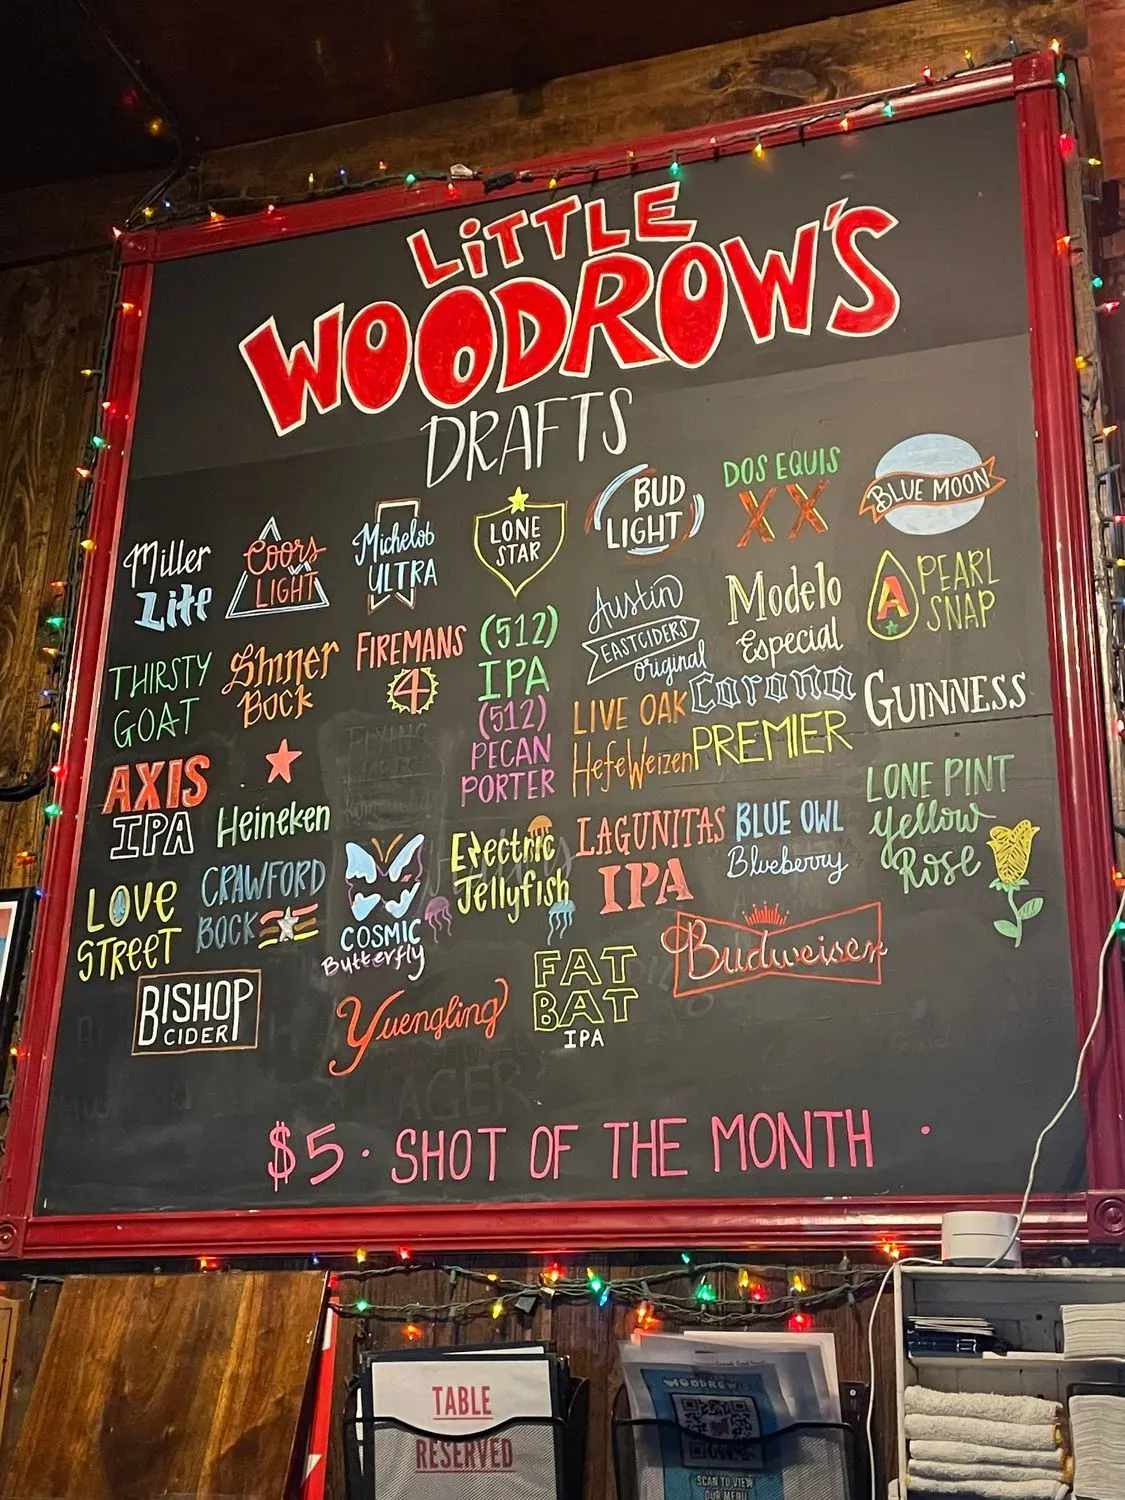 LiTTLE
WOODROW'S
DRAFTS
Miller
Lite
Coors
LIGHT
Michelob
ULTRA
LONE
STAR
BUD
LIGHT
DOS EQUIS
XX
BLUE MOON
THIRSTY
GOAT
Shiner
BOCK
FIREMANS
4
(512)
IPA
(512)
PECAN
PORTER
Austin
EASTCIDERS
original
Modelo
Especial
A
PEARL
SNAP
LIVE OAK
HefeWeizen
Corona
PREMIER
GUINNESS
AXIS
IPA
Heineken
FLYING
Electric
Jellyfish
LAGUNITAS
IPA
BLUE OWL
Blueberry
LONE PINT
Yellow
Rose
LOVE
STREET
CRAWFORD
BOCK
COSMIC
Butterfly
BISHOP
CIDER
Yuengling
FAT
BAT
IPA
Budweiser
$5 · SHOT OF THE MONTH ·
TABLE
RESERVED
WOODROW'S
SCAN TO VIEW
OUR MENU